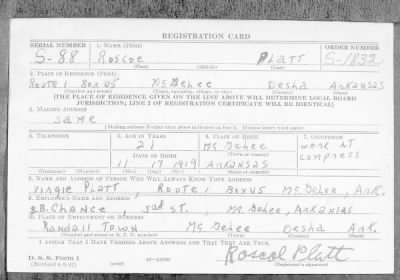 REGISTRATION CARD
SERIAL NUMBER 1. NAME (Print) ORDER NUMBER
S-88 Roscoe Platt S-1832
(First) (Middle) (Last)
2. PLACE OF RESIDENCE (Print)
Route 1 Box 45 McGehee Desha Arkansas
(Number and street) (Town, township, village, or city) (County) (State)
[THE PLACE OF RESIDENCE GIVEN ON THE LINE ABOVE WILL DETERMINE LOCAL BOARD
JURISDICTION; LINE 2 OF REGISTRATION CERTIFICATE WILL BE IDENTICAL]
3. MAILING ADDRESS
Same
[Mailing address if other than place indicated on line 2. If same insert word same]
4. TELEPHONE 5. AGE IN YEARS 6. PLACE OF BIRTH 7. OCCUPATION
21 McGehee work at
DATE OF BIRTH (Town or county) compress
11 17 1919 Arkansas
(Exchange) (Number) (Mo.) (Day) (Yr.) (State or country)
8. NAME AND ADDRESS OF PERSON WHO WILL ALWAYS KNOW YOUR ADDRESS
Virgie Platt, Route 1 Box 45 McGehee, Ark.
9. EMPLOYER'S NAME AND ADDRESS
Chance, 3rd St., McGehee, Arkansas
10. PLACE OF EMPLOYMENT OR BUSINESS
Randall Town McGehee Desha Ark
(Number and street or R. F. D. number) (Town) (County) (State)
I AFFIRM THAT I HAVE VERIFIED ABOVE ANSWERS AND THAT THEY ARE TRUE.
D. S. S. Form 1 Roscol Platt
(Registrant's signature)